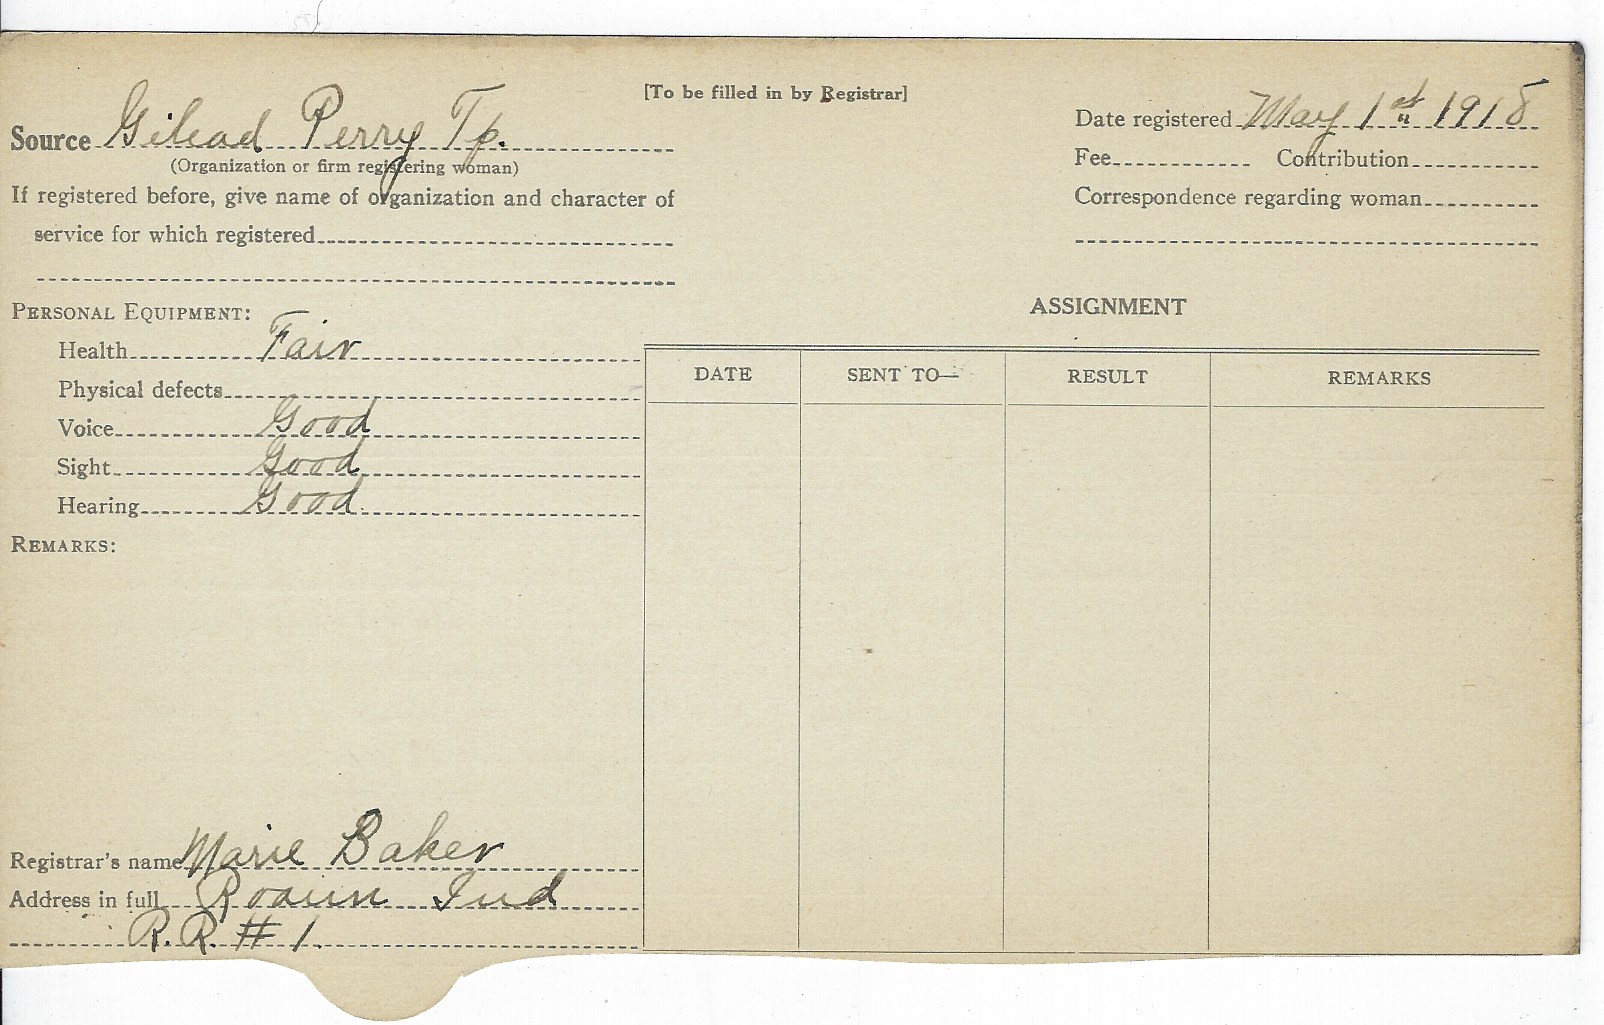 [To be filled in by Registrar]
Source Gilead Perry Tp.
(Organization or firm registering woman)
If registered before, give name of organization and character of
service for which registered
Date registered May 1st 1918
Fee Contribution
Correspondence regarding woman
PERSONAL EQUIPMENT:
Health Fair
Physical defects
Voice Good
Sight Good
Hearing Good
REMARKS:
ASSIGNMENT
DATE SENT TO— RESULT REMARKS
Registrar's name Marie Baker
Address in full Roann Ind
R.R. # 1.